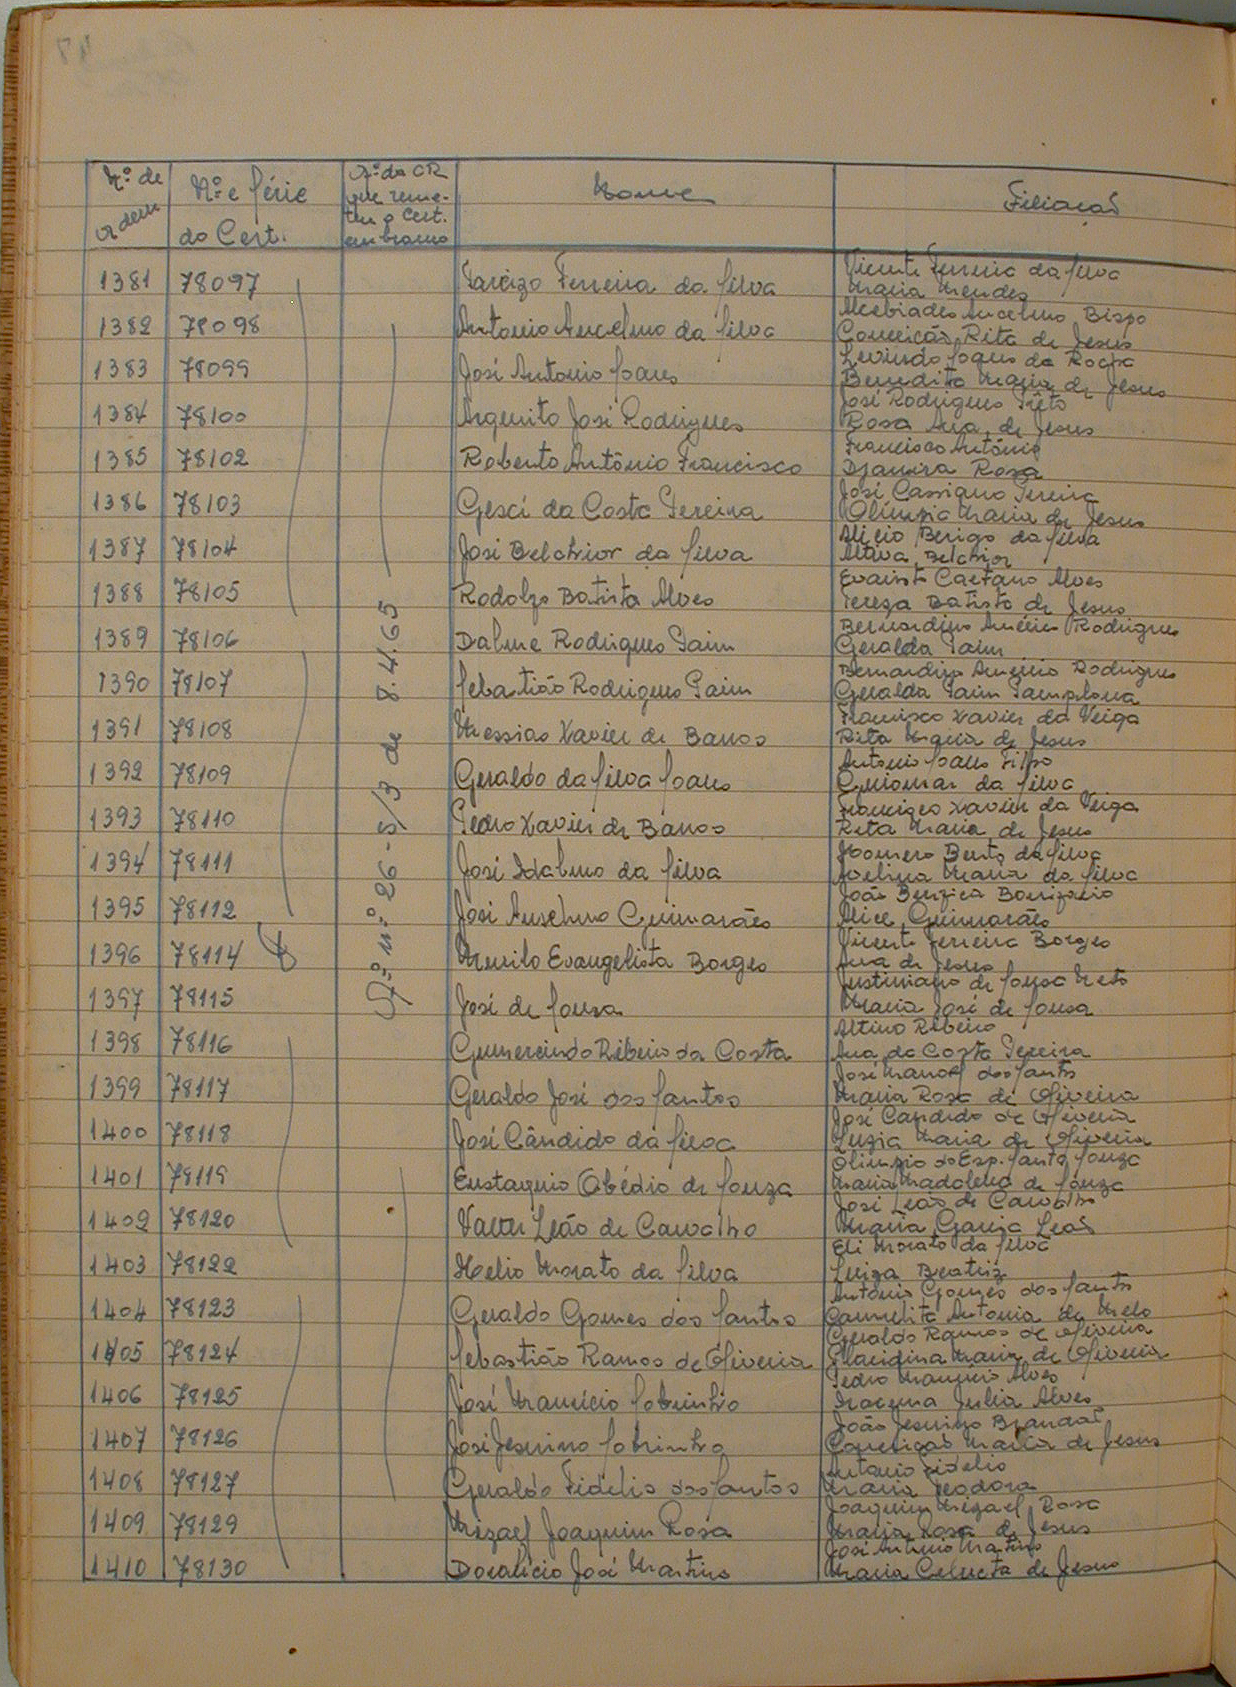 Nº de ordem | Nº e Série do Cert. | Nº da CR que reme- teu o Cert. em branco | Nome | Filiação
Of. nº 26-S/3 de 8.4.65
1381 | 78097 | Tarcizo Ferreira da Silva | Vicente Ferreira da Silva
Maria Mendes
1382 | 78098 | Antonio Ancelmo da Silva | Alcebiades Ancelmo Bispo
Conceição Rita de Jesus
1383 | 78099 | José Antonio Soares | Levindo Soares da Rocha
Benedita Maria de Jesus
1384 | 78100 | Argenito José Rodrigues | José Rodrigues Prêto
Rosa Ana de Jesus
1385 | 78102 | Roberto Antônio Francisco | Francisco Antônio
Djanira Rosa
1386 | 78103 | Gesci da Costa Pereira | José Cassiano Pereira
Olímpia Maria de Jesus
1387 | 78104 | José Belchior da Silva | da Silva
Altiva Belchior
1388 | 78105 | Rodolfo Batista Alves | Evaristo Caetano Alves
Tereza Batista de Jesus
1389 | 78106 | Dalme Rodrigues Paim | Bernardino Américo Rodrigues
Geralda Paim
1390 | 78107 | Sebastião Rodrigues Paim | Bernardino Américo Rodrigues
Geralda Paim Pamplona
1391 | 78108 | Messias Xavier de Barros | Francisco Xavier da Veiga
Rita Maria de Jesus
1392 | 78109 | Geraldo da Silva Soares | Antonio Soares Filho
Guiomar da Silva
1393 | 78110 | Pedro Xavier de Barros | Francisco Xavier da Veiga
Rita Maria de Jesus
1394 | 78111 | José Idalmo da Silva | Homero Bento da Silva
Avelina Maria da Silva
1395 | 78112 | José Anselmo Guimarães | João Benfica Bonifácio
Alice Guimarães
1396 | 78114 | Murilo Evangelista Borges | Vicente Ferreira Borges
Ana de Jesus
1397 | 78115 | José de Sousa | Justiniano de Sousa Neto
Maria José de Sousa
1398 | 78116 | Gumercindo Ribeiro da Costa | Altino Ribeiro
Ana da Costa Pereira
1399 | 78117 | Geraldo José dos Santos | José Manoel dos Santos
Maria Rosa de Oliveira
1400 | 78118 | José Cândido da Silva | José Candido de Oliveira
Luzia Maria de Oliveira
1401 | 78119 | Eustaquio Obédio de Souza | Olimpio do Esp. Santo Souza
Maria Madalena de Souza
1402 | 78120 | Valter Leão de Carvalho | José Leão de Carvalho
Maria Garcia Leão
1403 | 78122 | Helio Morato da Silva | Eli Morato da Silva
Luiza Beatriz
1404 | 78123 | Geraldo Gomes dos Santos | Antônio Gomes dos Santos
Carmelita Antonia de Melo
1405 | 78124 | Sebastião Ramos de Oliveira | Geraldo Ramos de Oliveira
Placidina Maria de Oliveira
1406 | 78125 | José Maurício Sobrinho | Pedro Mauricio Alves
Iracema Julia Alves
1407 | 78126 | José Jesuino Sobrinho | João Jesuino Brandão
Conceição Maria de Jesus
1408 | 78127 | Geraldo Fidelis dos Santos | Antonio Fidelio
Maria Teodora
1409 | 78129 | Mizael Joaquim Rosa | Joaquim Mizael Rosa
Maria Rosa de Jesus
1410 | 78130 | Doralicio José Martins | José Antonio Martins
Maria de Jesus